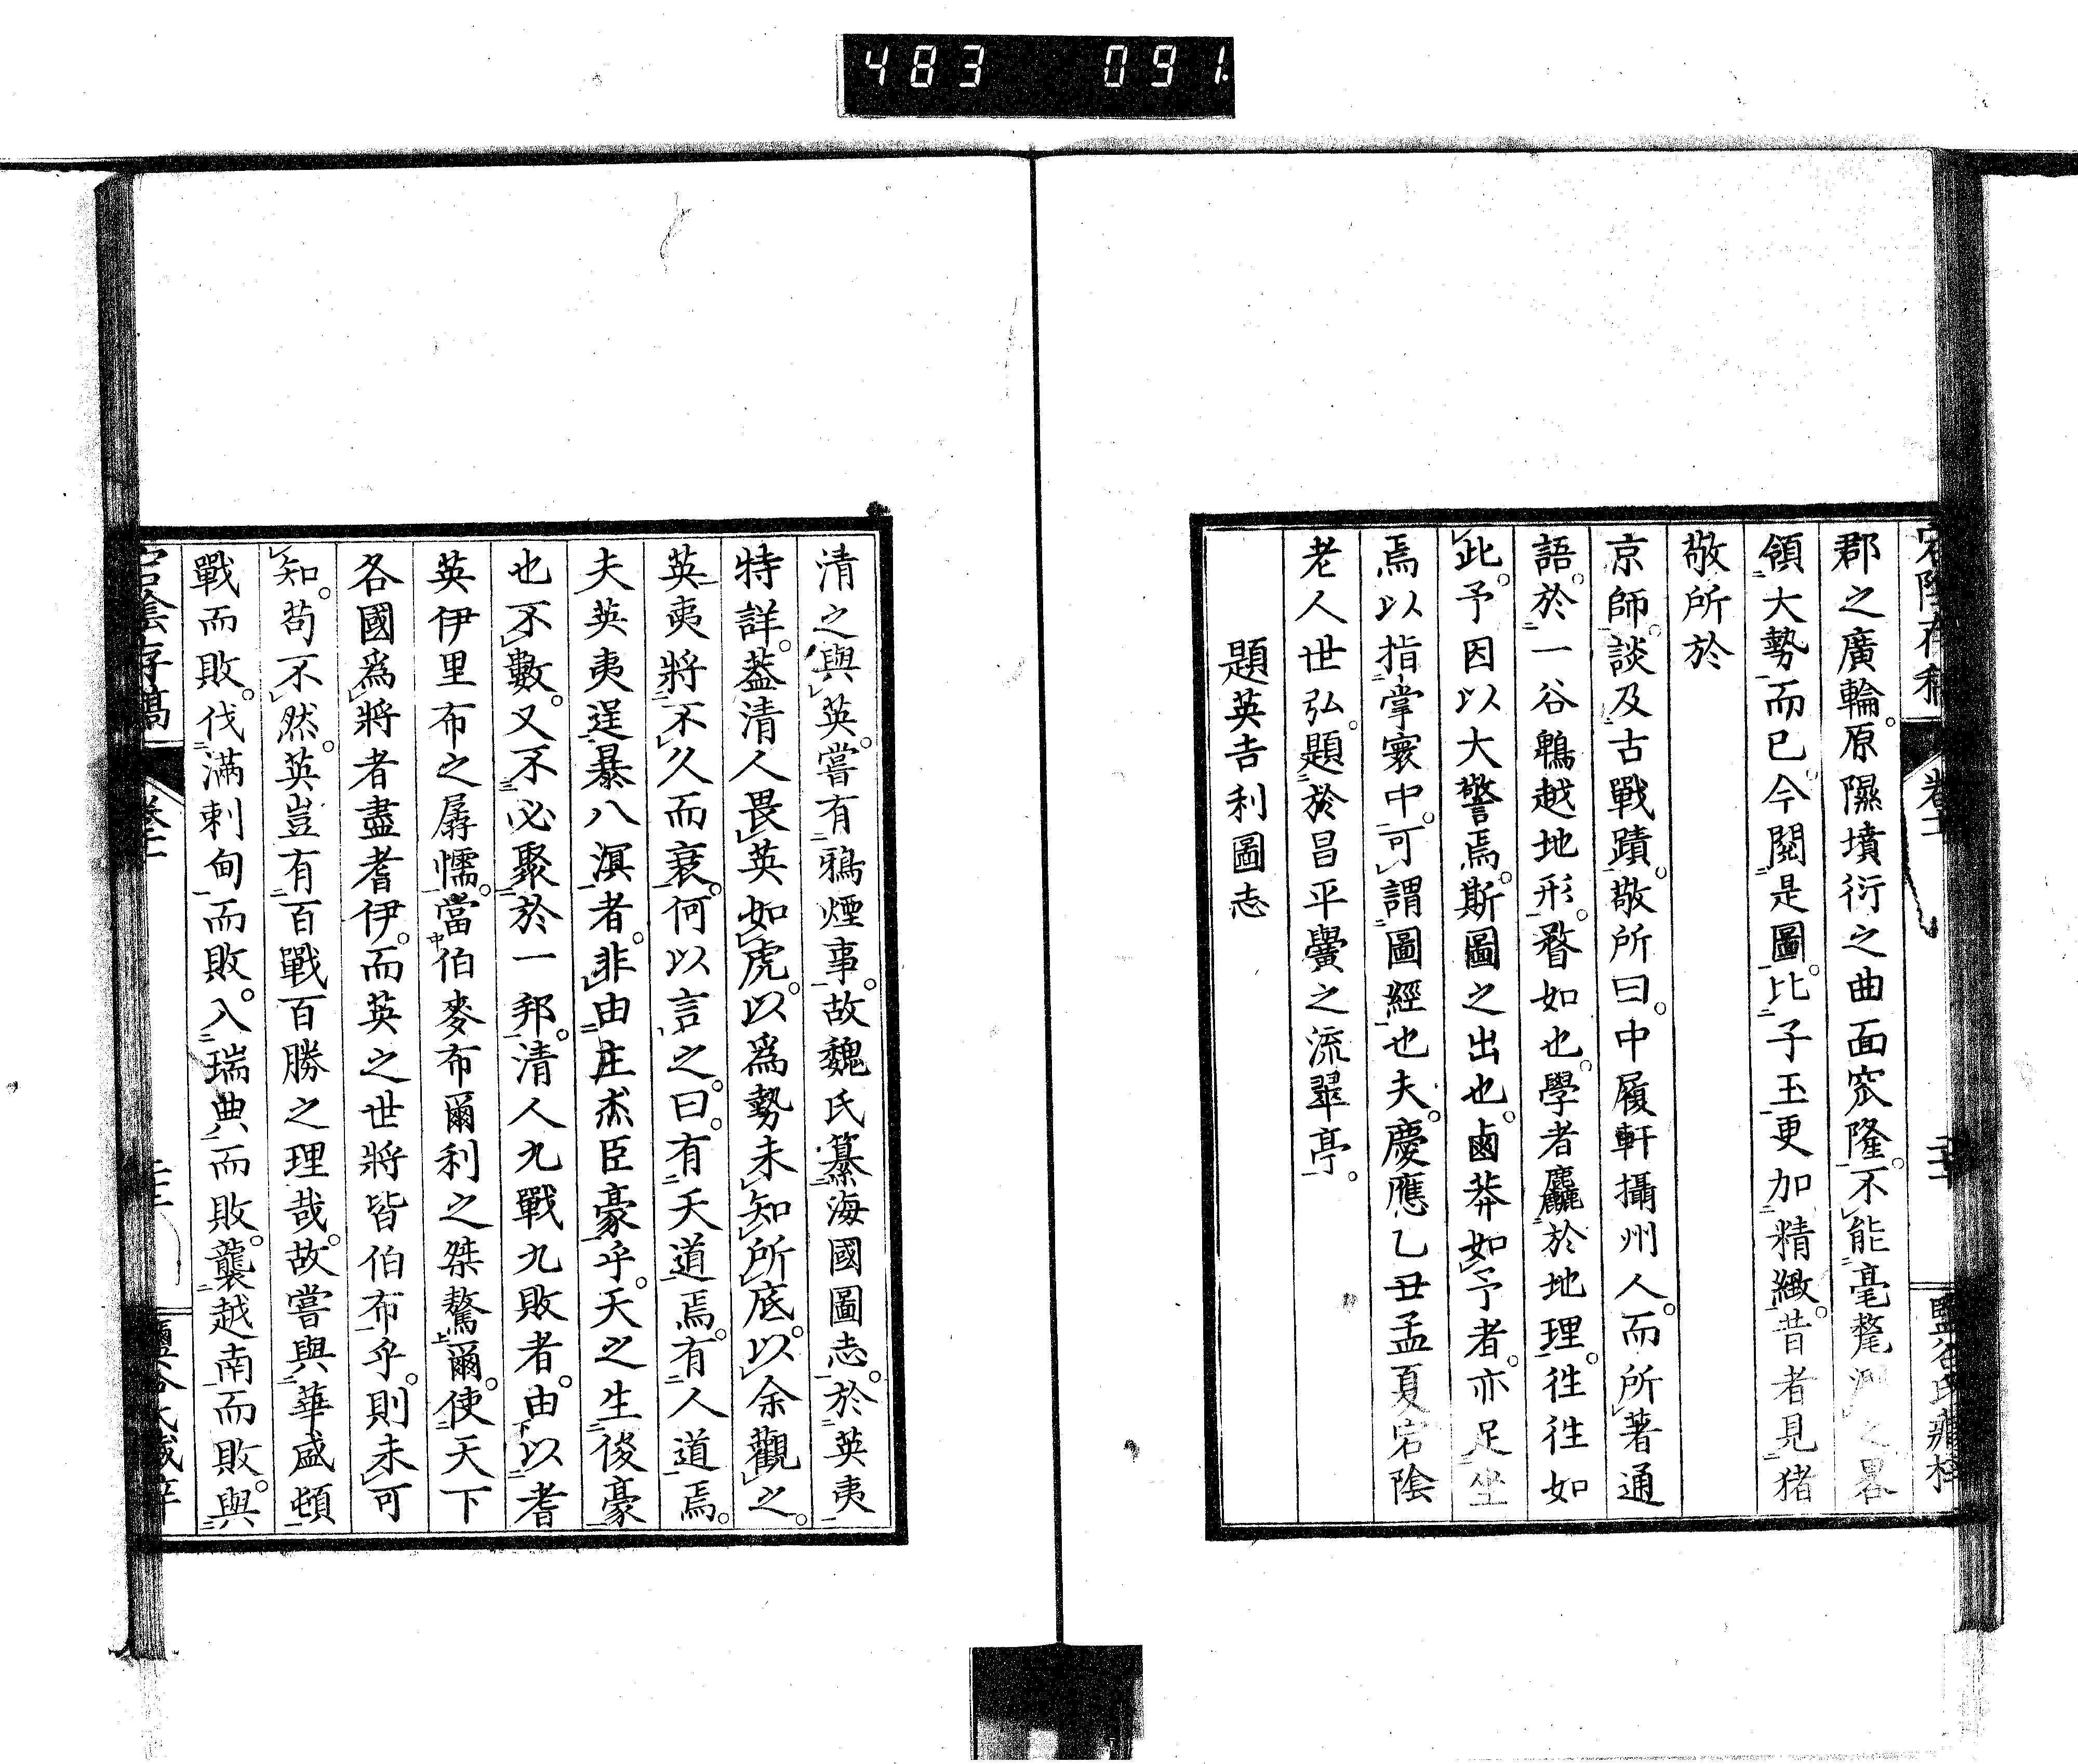 483 091
郡之廣輪。原隰墳衍之曲面窊隆。不能毫氂測之畧
領大勢而已。今閱是圖。比子玉更加精緻。昔者見猪
敬所於
京師。談及古戰蹟。敬所曰。中履軒攝州人。而所著通
語。於一谷鵯越地形。瞀如也。學者麤於地理。往往如
此。予因以大警焉。斯圖之出也。鹵莽如予者。亦足坐
焉以指掌寰中。可謂圖經也夫。慶應乙丑孟夏宕陰
老人世弘。題於昌平黌之流翠亭。
題英吉利圖志
清之與英。嘗有鴉煙事。故魏氏纂海國圖志。於英夷
特詳。蓋清人畏英如虎。以爲勢未知所底。以余觀之。
英夷將不久而衰。何以言之。曰。有天道焉。有人道焉。
夫英夷逞暴八溟者。非由庄杰臣豪乎。天之生俊豪
也不數。又不必聚於一邦。清人九戰九敗者。由以耆
英伊里布之孱懦。當伯麥布爾利之桀驁爾。使天下
各國爲將者盡耆伊。而英之世將皆伯布乎。則未可
知。苟不然。英豈有百戰百勝之理哉。故嘗與華盛頓
戰而敗。伐滿剌甸而敗。入瑞典而敗。襲越南而敗。與
宕陰存稿 卷十二